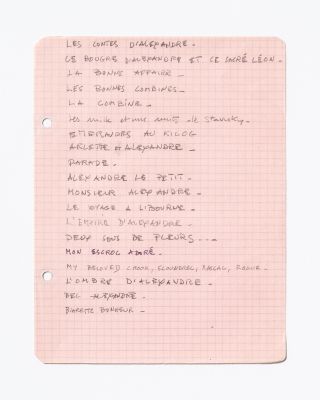 LES CONTES D'ALEXANDRE.
LE BOUGRE D'ALEXANDRE ET CE SACRÉ LÉON.
LA BONNE AFFAIRE -
LES BONNES COMBINES -
LA COMBINE -
Les mille et une nuits de Stavisky.
ÉMERAUDES AU KILOG
ARLETTE et ALEXANDRE -
PARADE -
ALEXANDRE LE PETIT -
MONSIEUR ALEXANDRE -
LE VOYAGE À LIBOURNE -
L'EMPIRE D'ALEXANDRE -
DEUX SOUS DE FLEURS...-
MON ESCROC ADORÉ -
MY BELOVED CROOK, SCOUNDREL, RASCAL, ROGUE -
L'OMBRE D'ALEXANDRE -
BEL ALEXANDRE -
BIARRITZ BONHEUR -